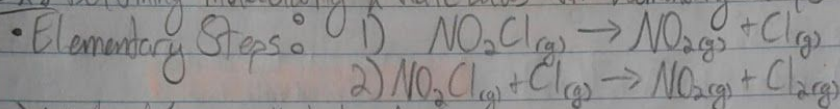 • Elementary Steps: 1) NO₂Cl(g) → NO₂(g) + Cl(g)
2) NO₂Cl(g) + Cl(g) → NO₂(g) + Cl₂(g)